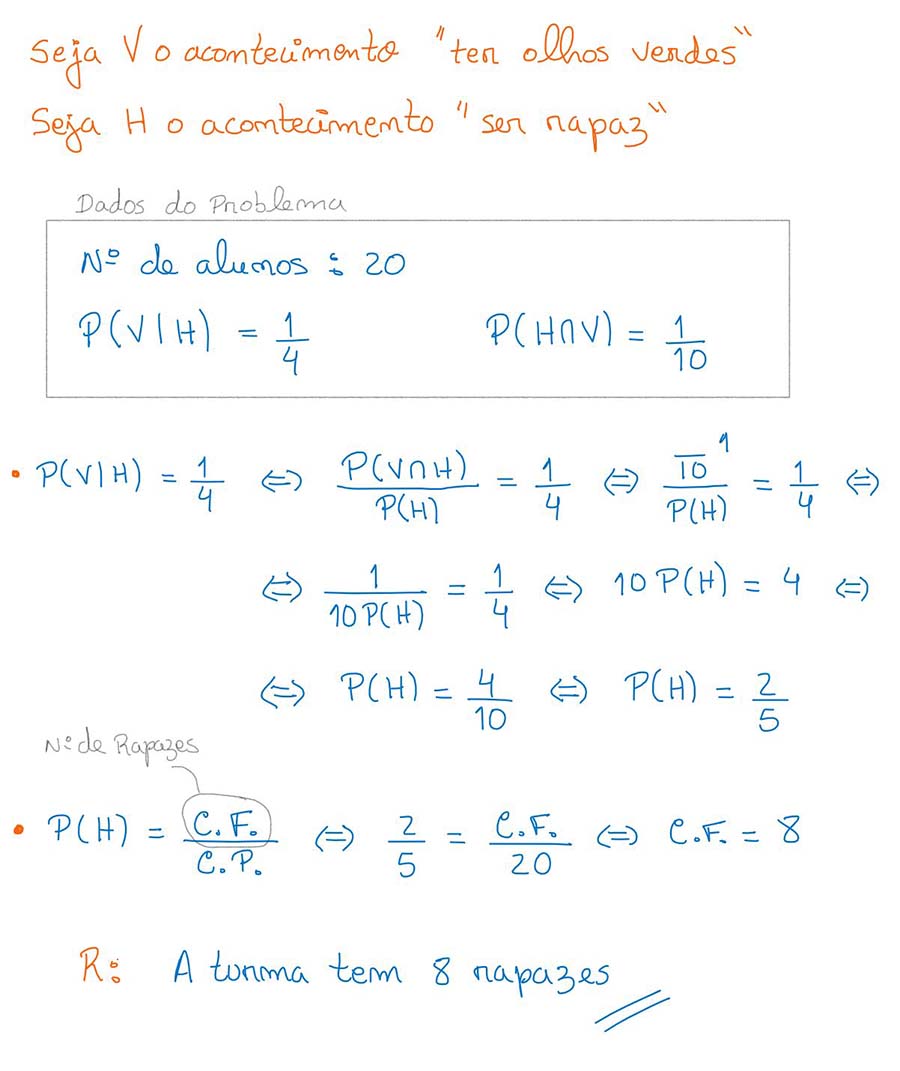 Seja V o acontecimento "ter olhos verdes"
Seja H o acontecimento "ser rapaz"
Dados do Problema
Nº de alunos : 20
P(V|H) = 1/4 P(H∩V) = 1/10
• P(V|H) = 1/4 ⇔ P(V∩H)/P(H) = 1/4 ⇔ (1/10)/P(H) = 1/4 ⇔
⇔ 1/(10P(H)) = 1/4 ⇔ 10 P(H) = 4 ⇔
⇔ P(H) = 4/10 ⇔ P(H) = 2/5
Nº de Rapazes
• P(H) = C.F./C.P. ⇔ 2/5 = C.F./20 ⇔ C.F. = 8
R: A turma tem 8 rapazes